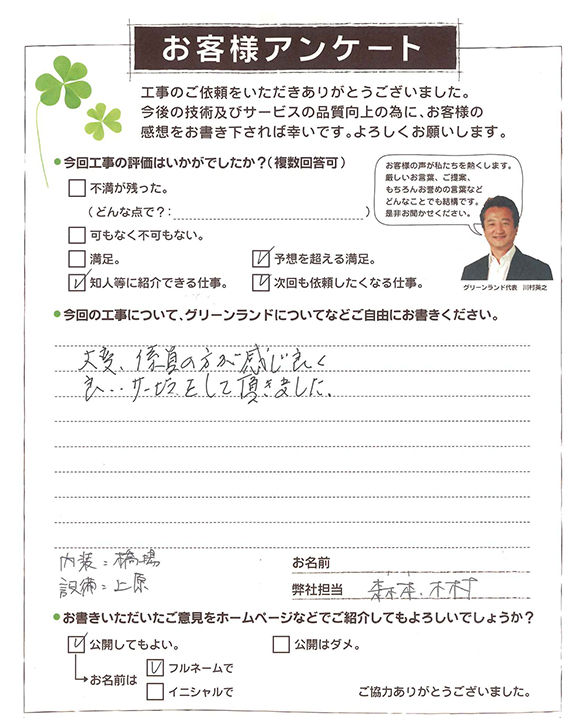 お客様アンケート
工事のご依頼をいただきありがとうございました。
今後の技術及びサービスの品質向上の為に、お客様の
感想をお書き下されば幸いです。よろしくお願いします。
今回工事の評価はいかがでしたか?(複数回答可)
お客様の声が私たちを熱くします。
厳しいお言葉、ご提案、
もちろんお誉めの言葉など
どんなことでも結構です。
是非お聞かせください。
不満が残った。
(どんな点で?:)
可もなく不可もない。
満足。 予想を超える満足。
知人等に紹介できる仕事。 次回も依頼したくなる仕事。
グリーンランド代表 川村英之
今回の工事について、グリーンランドについてなどご自由にお書きください。
大変、係員の方が感じ良く
良い サービスをして頂きました。
内装:橋場
設備:上原
お名前
弊社担当 森本、木村
お書きいただいたご意見をホームページなどでご紹介してもよろしいでしょうか?
公開してもよい。 公開はダメ。
お名前は フルネームで
イニシャルで
ご協力ありがとうございました。